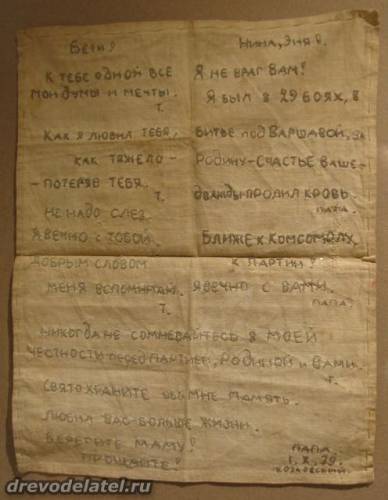 Бети!
К тебе одной все
мои думы и мечты.
Т.
Как я любил тебя,
как тяжело –
– потеряв тебя.
Т.
Не надо слез.
Я вечно с тобой.
Добрым словом
меня вспоминай.
Т.
Нина, Эля!
Я не враг вам!
Я был в 29 боях, в
битве под Варшавой, за
Родину – счастье ваше –
дважды пролил кровь.
папа.
Ближе к комсомолу,
к партии!
Я вечно с вами.
папа.
Никогда не сомневайтесь в моей
честности перед партией, Родиной и вами.
Т.
Свято храните обо мне память.
Любил вас больше жизни.
Берегите маму!
Прощайте!
папа
1.X.39.
Козловский
drevodelatel.ru